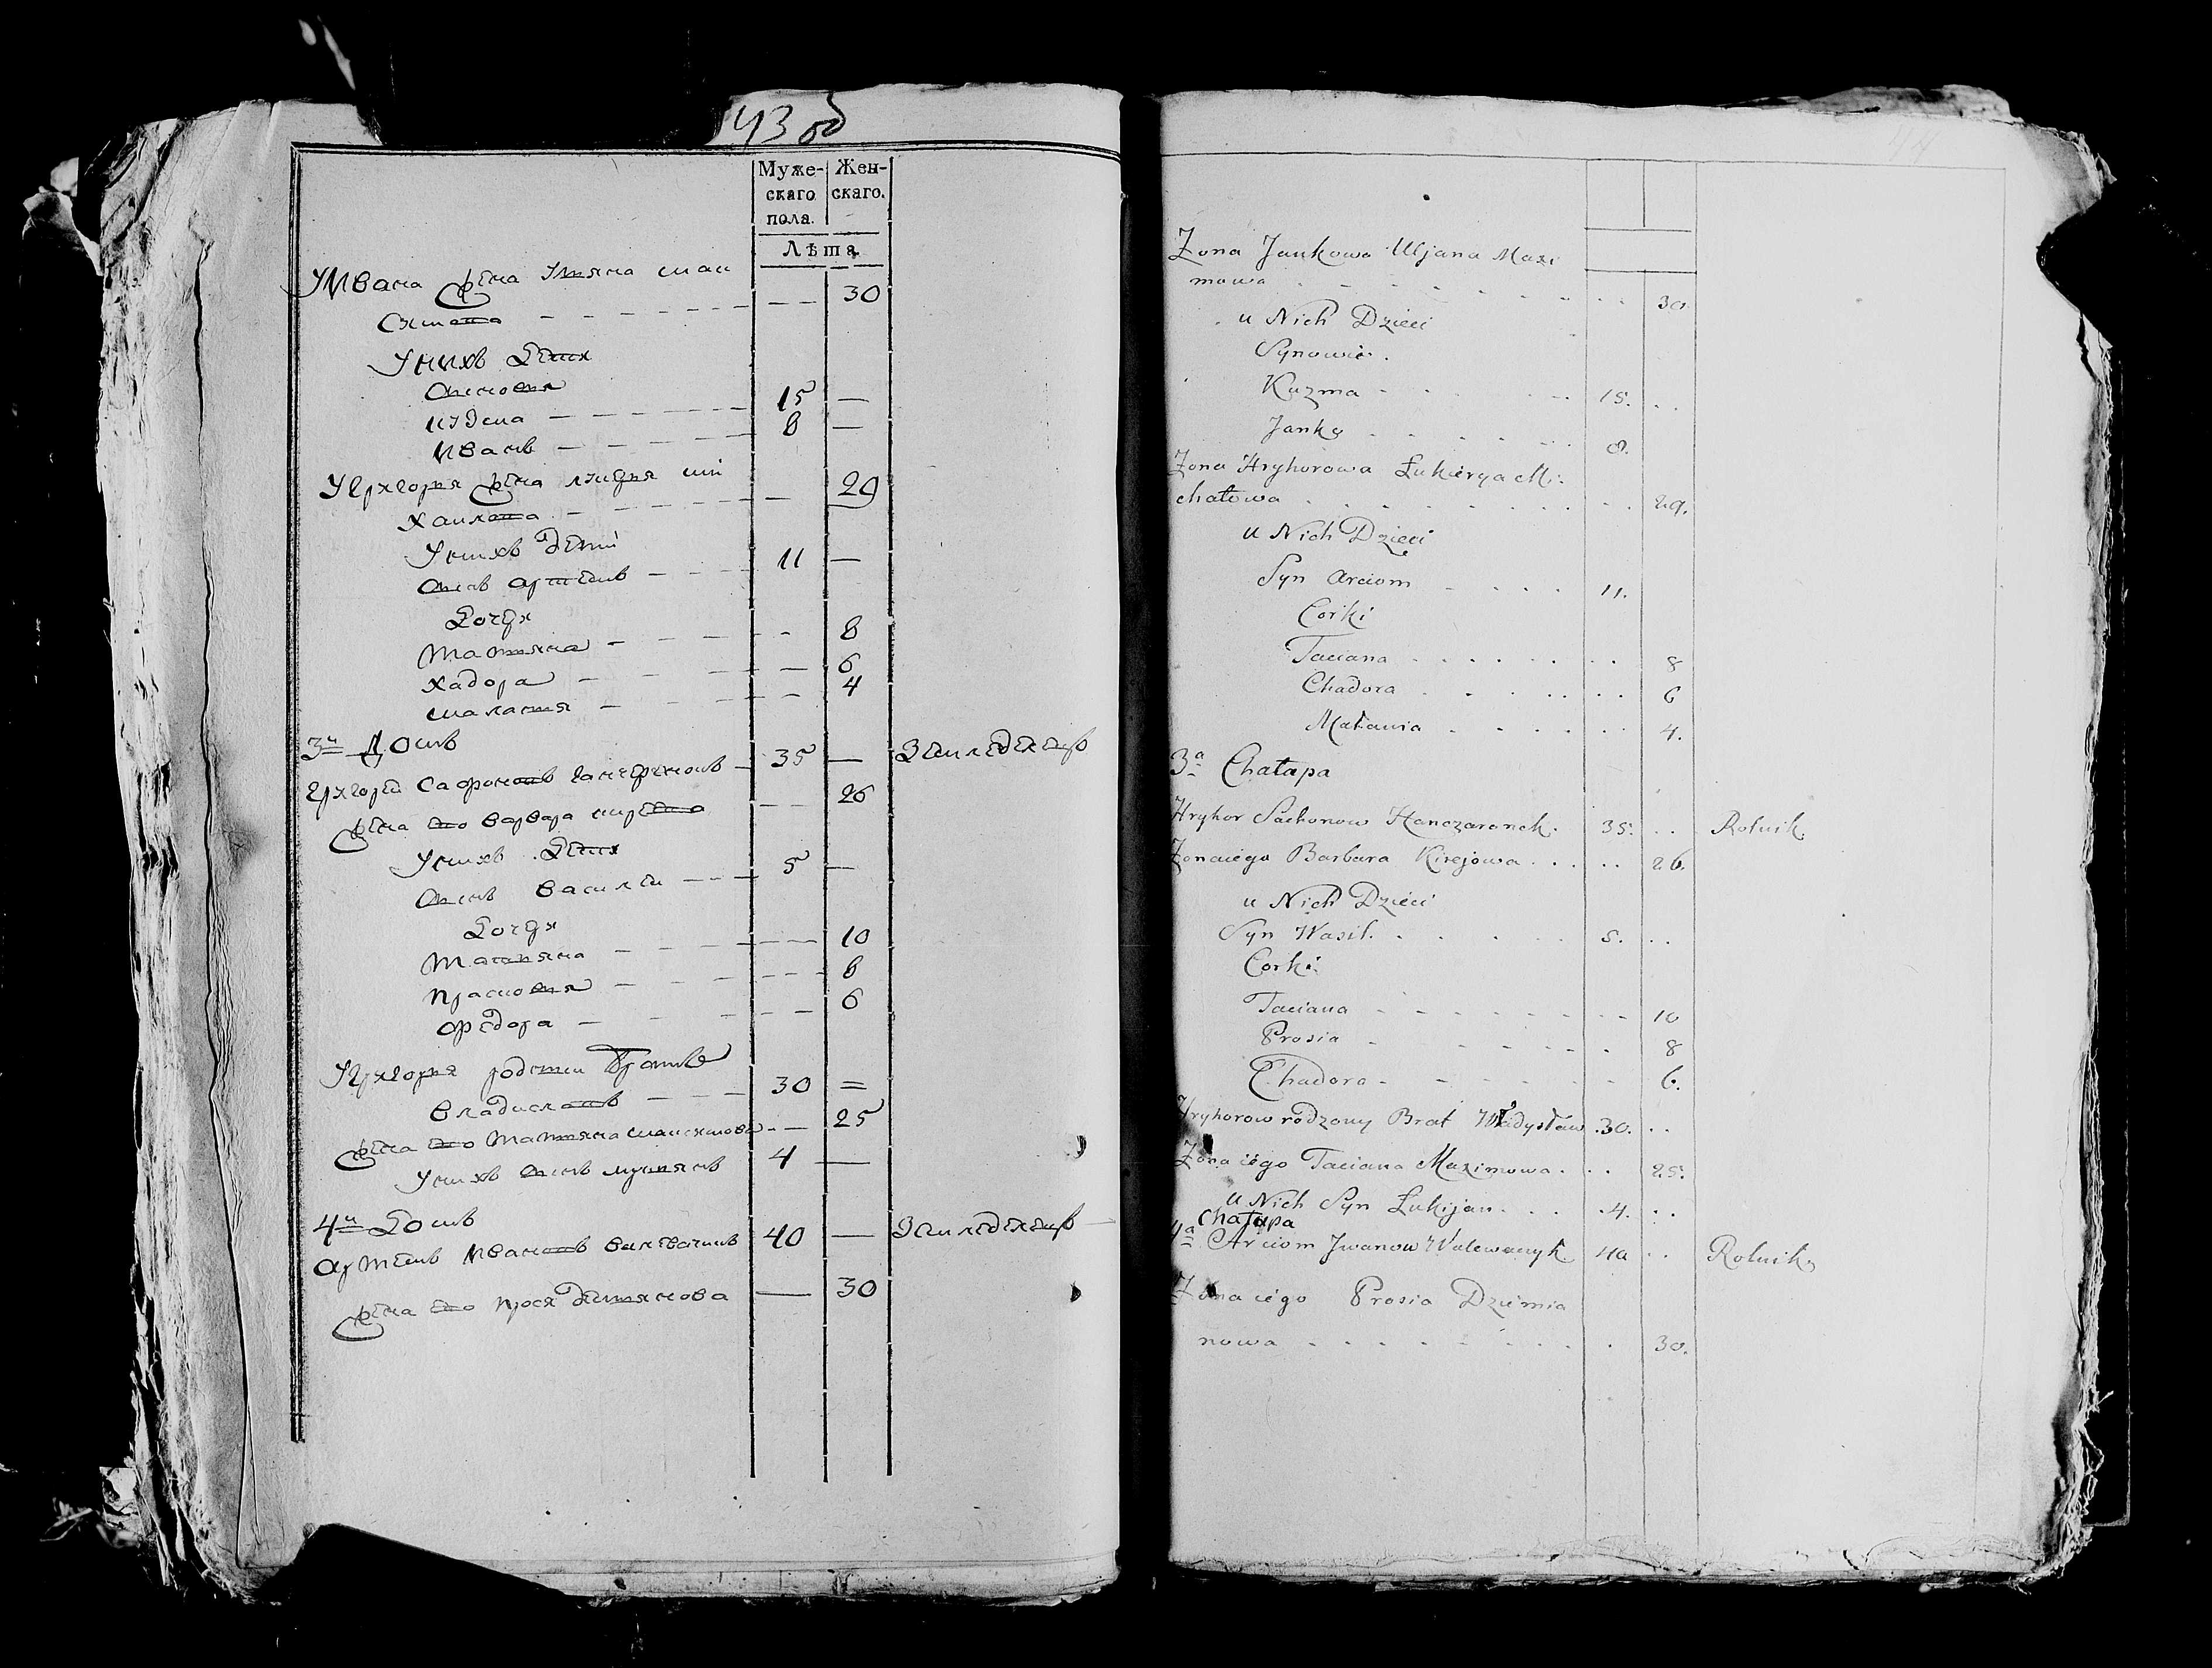 43 об
Муже-
скаго
пола.
Жен-
скаго.
Лѣта
У Ивана жена Уляна Мак
симова 30
У нихъ дети
сыновя
Кузма 15 —
Иванъ 8 —
У Грегоря жена Ми
хайлова 29
У нихъ дети
сынъ Артемъ 11 —
дочери
Татяна 8
Хадора 6
Маланя 4
3й Домъ
Грегорей Сафоновъ Ганчеренокъ 35 — Земледелецъ
жена его Варвара Киреева 26
У нихъ дети
сынъ Василей 5 —
дочери
Татяна 10
Прасковя 8
Федора 6
У Грегоря родной братъ
Владиславъ 30 =
жена его Татяна Максимова 25
У нихъ сынъ Лукянъ 4 —
4й Домъ
Артемъ Ивановъ 40 — Земледелецъ
жена его Прося Демянова — 30
44
Żona Jankowa Uljana Maxi
mowa 30.
u Nich Dzieci
Synowie.
Kuzma 15. ..
Janko 8.
Żona Hryhorowa Łukierya Mi:
chałowa 29.
u Nich Dzieci
Syn Arciom 11.
Corki
Taciana 8
Chadora 6
Małania 4.
3a Chałupa
Hryhor Sachonow Hanczaronek. 35. .. Rolnik.
Żona iego Barbara Kirejowa 26.
u Nich Dzieci
Syn Wasil. 5. ..
Corki
Taciana 10
Prosia 8
Chadora 6.
Hryhorow rodzony Brat Władysław .30. ..
Żona iego Taciana Maximowa. 25.
u Nich Syn Łukijan .4. ..
Chałupa
4a Arciom Jwanow Walewaczyk 40 .. Rolnik.
Żona iego Prosia Dziemia
nowa 30.